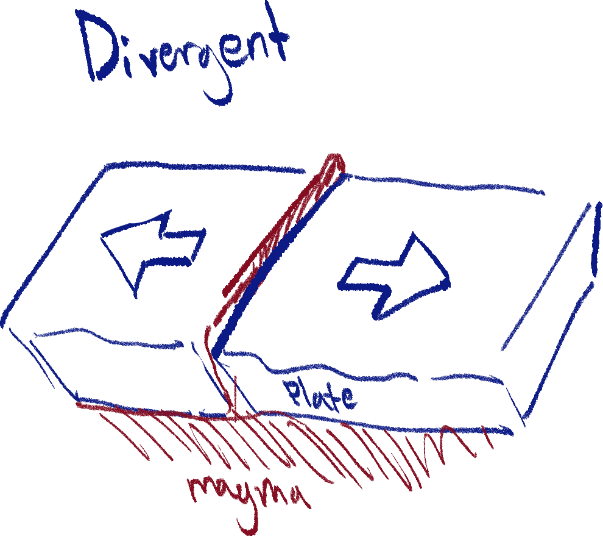 Divergent
Plate
magma